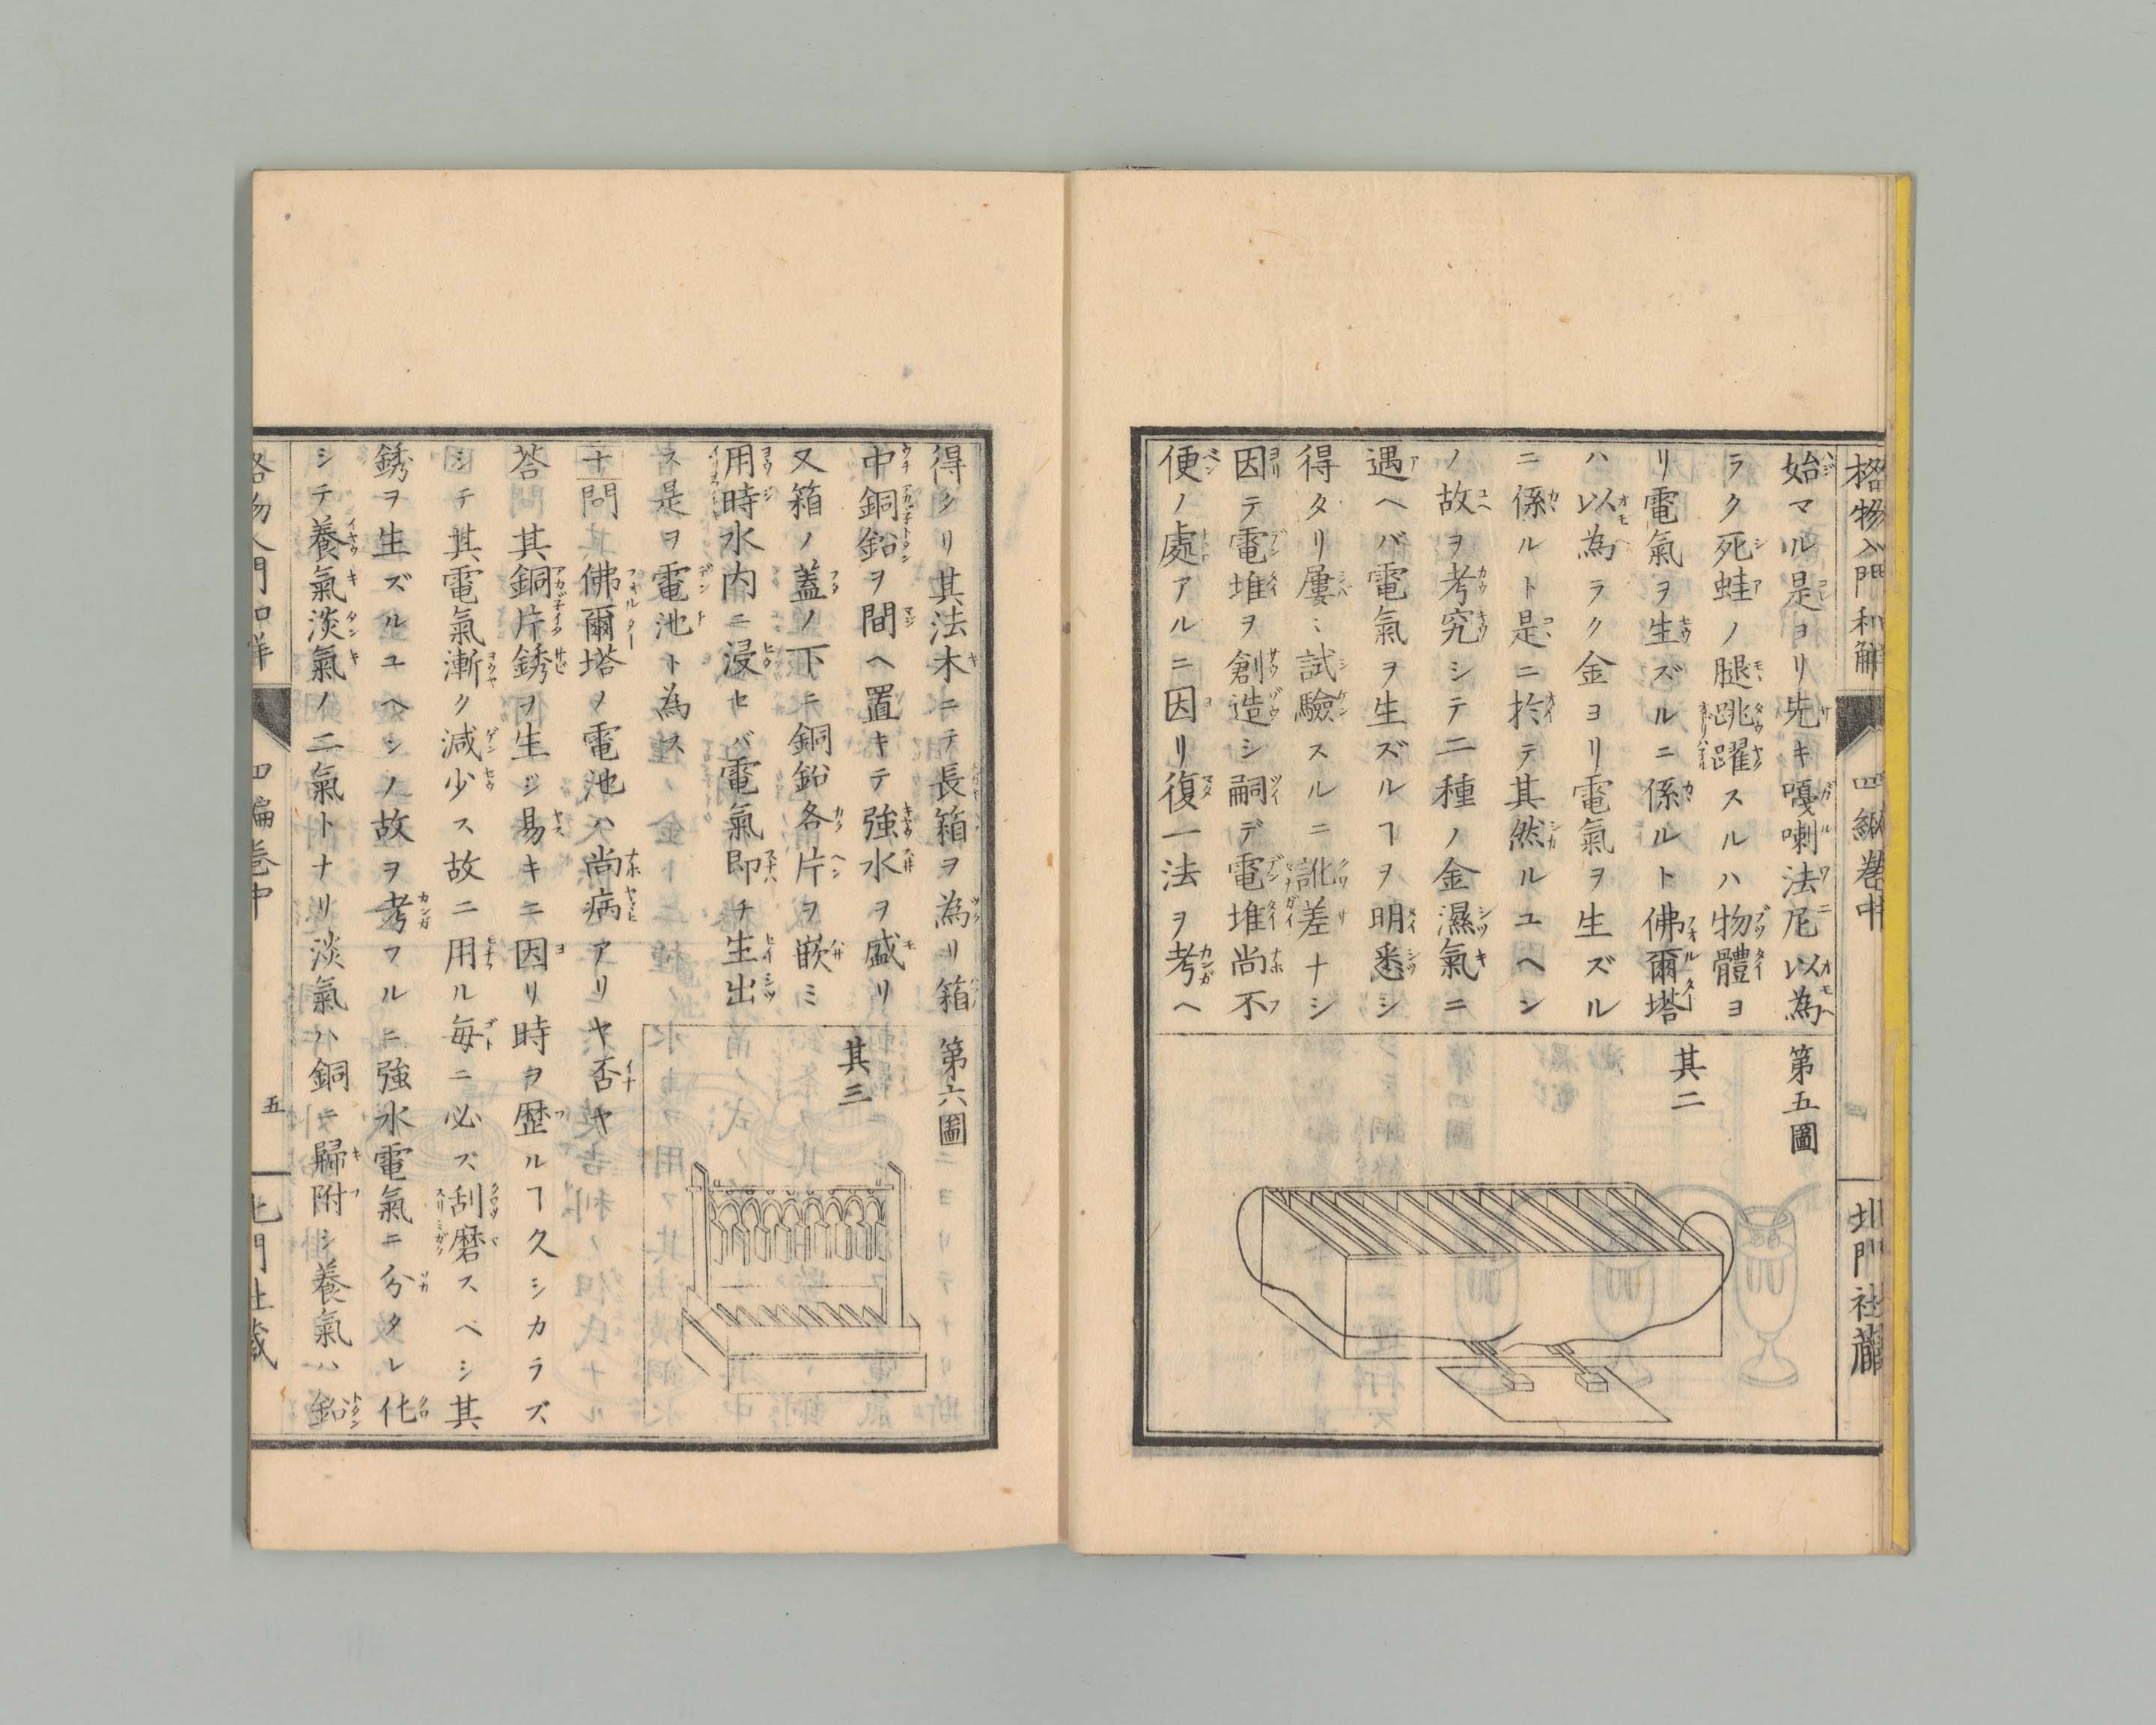 格物入門和解 四編巻中 北門社蔵
始マル是ヨリ先キ嘎喇法尼以為
ラク死蛙ノ腿跳躍スルハ物體ヨ
リ電氣ヲ生ズルニ係ルト佛爾塔
ハ以為ラク金ヨリ電氣ヲ生ズル
ニ係ルト是ニ於テ其然ルユヘン
ノ故ヲ考究シテ二種ノ金濕氣ニ
遇ヘバ電氣ヲ生ズルヿヲ明悉シ
得タリ屢〻試驗スルニ訛差ナシ
因テ電堆ヲ創造シ嗣デ電堆尚不
便ノ處アルニ因リ復一法ヲ考ヘ
第五圖
其二
得タリ其法木ニテ長箱ヲ為リ箱
中銅鉛ヲ間ヘ置キテ強水ヲ盛リ
又箱ノ蓋ノ下ニ銅鉛各片ヲ嵌ミ
用時水内ニ浸セバ電氣即チ生出
ス是ヲ電池ト為ス
第六圖
其三
十問 佛爾塔ノ電池ハ尚病アリヤ否ヤ
荅 其銅片銹ヲ生ジ易キニ因リ時ヲ歴ルヿ久シカラズ
シテ其電氣漸ク減少ス故ニ用ル毎ニ必ズ刮磨スベシ其
銹ヲ生ズルユヘンノ故ヲ考フルニ強水電氣ニ分タレ化
シテ養氣淡氣ノ二氣トナリ淡氣ハ銅ニ歸附シ養氣ハ鉛
格物入門和解 四編巻中 五 北門社蔵